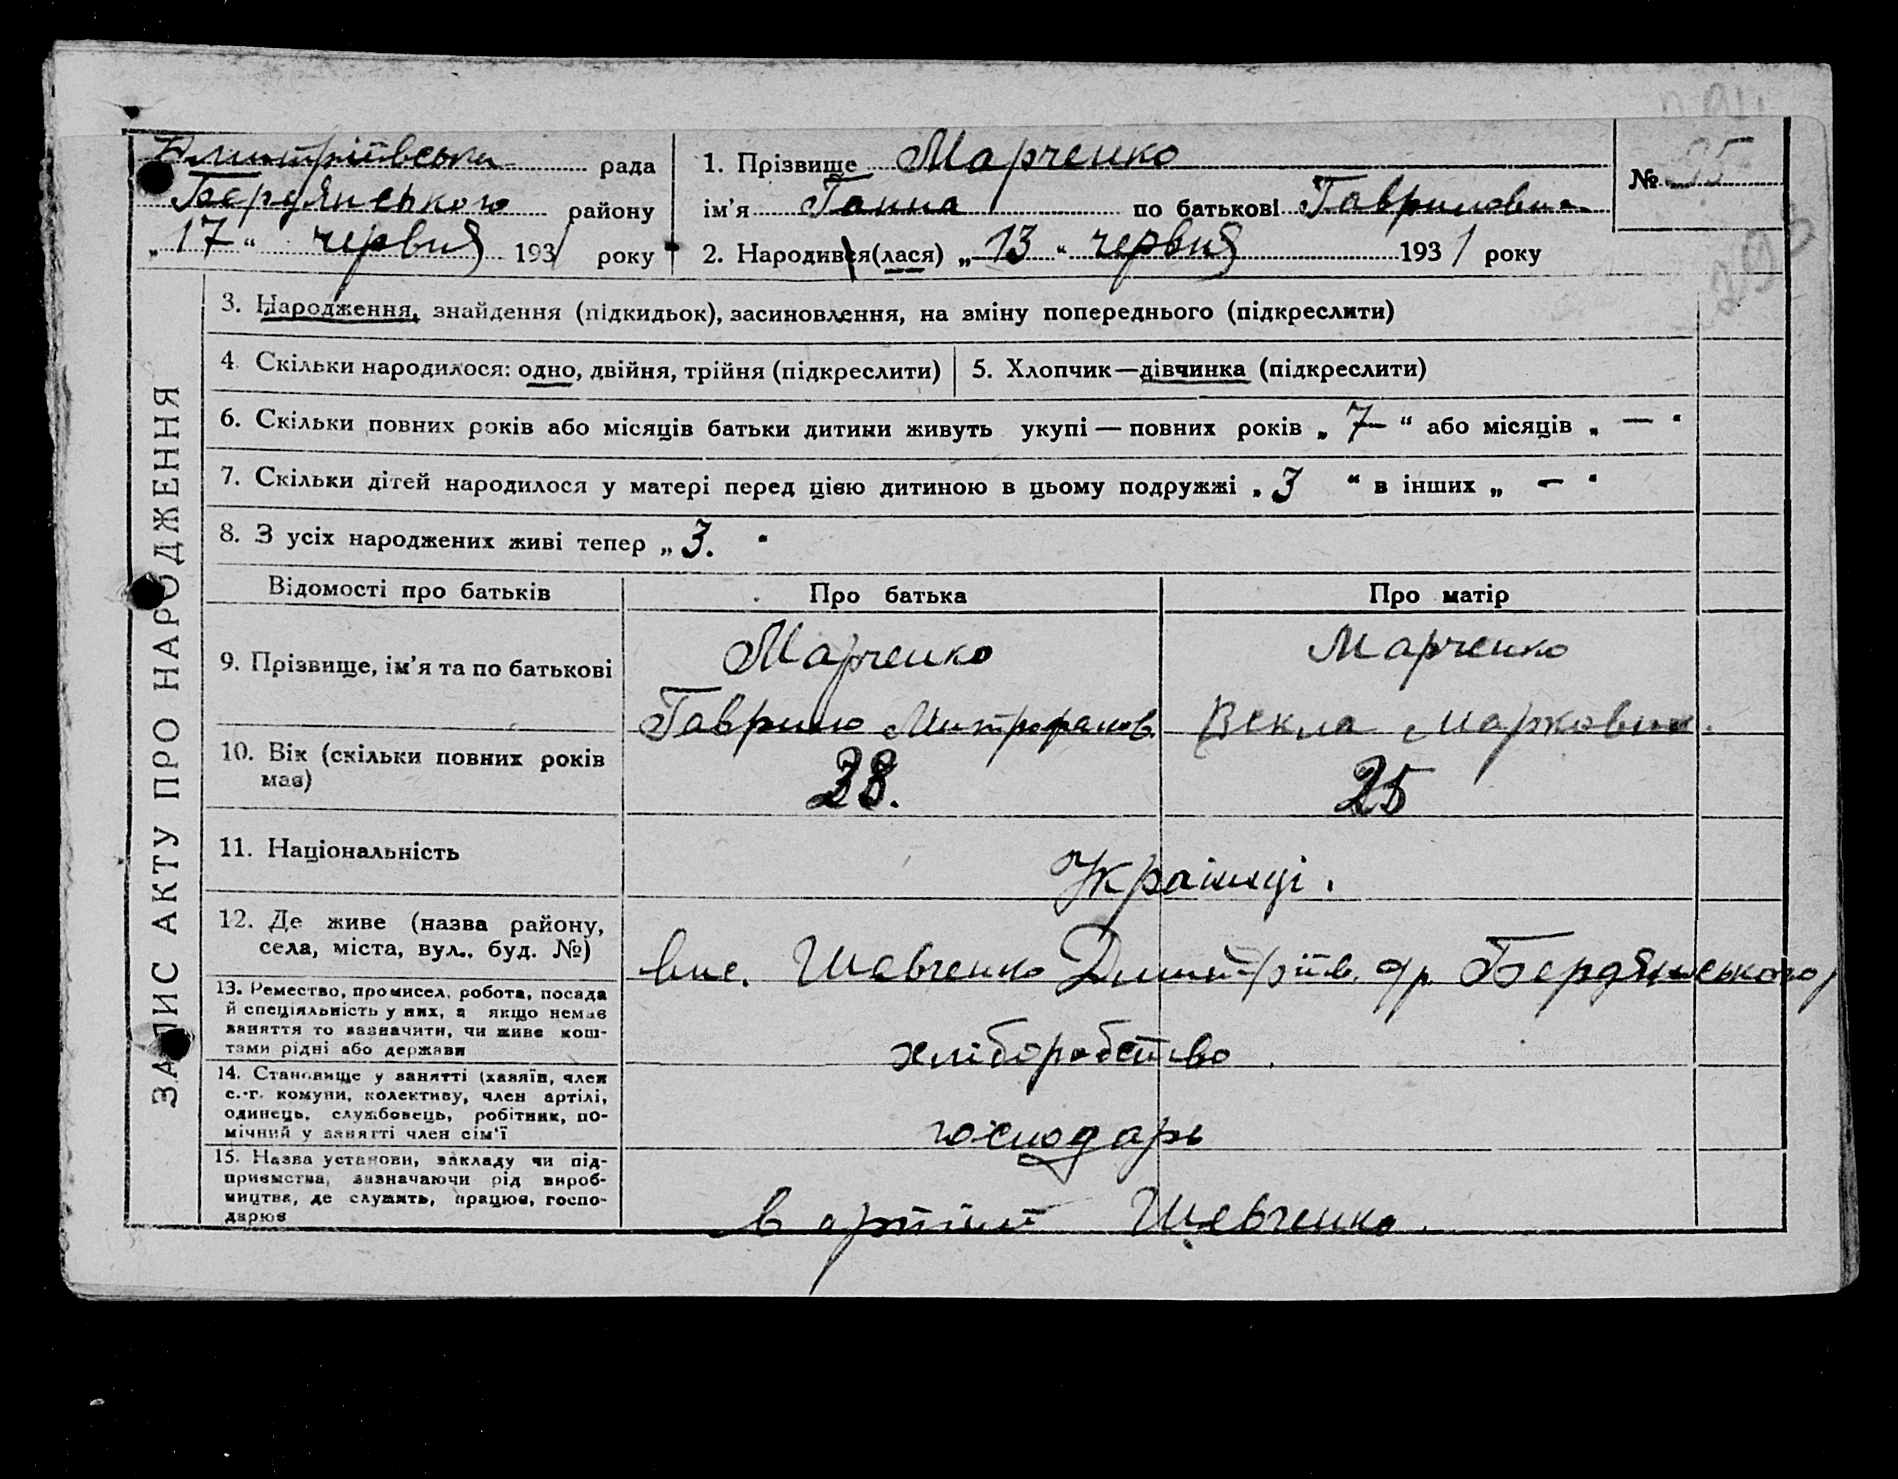 Дмитріївська рада
Бердянського району
„17“ червня 1931 року
1. Прізвище Марченко
ім’я Ганна по батькові Гавриловна
2. Народився(лася) „13“ червня 1931 року
№ 95
ЗАПИС АКТУ ПРО НАРОДЖЕННЯ
3. Народження, знайдення (підкидьок), засиновлення, на зміну попереднього (підкреслити)
4. Скільки народилося: одно, двійня, трійня (підкреслити)
5. Хлопчик—дівчинка (підкреслити)
6. Скільки повних років або місяців батьки дитини живуть укупі — повних років „7“ або місяців „—“
7. Скільки дітей народилося у матері перед цією дитиною в цьому подружжі „3“ в інших „—“
8. З усіх народжених живі тепер „3.“
Відомості про батьків
Про батька
Про матір
9. Прізвище, ім’я та по батькові
Марченко
Гаврило Митрофанов
Марченко
Векла Марковна.
10. Вік (скільки повних років
має)
28.
25
11. Національність
Українці.
12. Де живе (назва району,
села, міста, вул., буд. №)
вис. Шевченко Дмитріїв. с/р. Бердянського р
13. Ремество, промисел, робота, посада
й спеціяльність у них, а якщо немає
заняття то зазначити, чи живе кош-
тами рідні або держави
хліборобство.
14. Становище у занятті (хазяїн, член
с.-г. комуни, колективу, член артілі,
одинець, службовець, робітник, по-
мічний у занятті член сім’ї
господарь
15. Назва установи, закладу чи під-
приємства, зазначаючи рід вироб-
ництва, де служить, працює, госпо-
дарює
в артілі Шевченко.